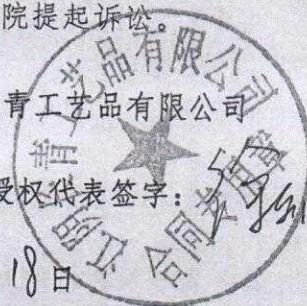 院提起诉讼。
青工艺品有限公司
授权代表签字：
18日
江阴
青工艺品有限公司
合同专用章